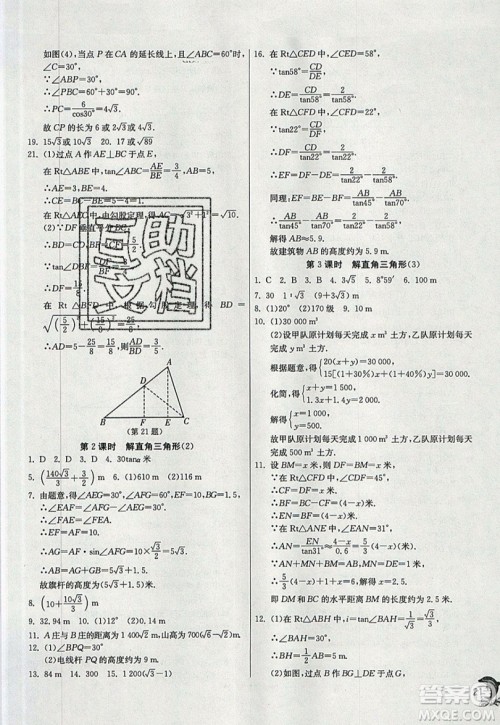 如图(4),当点 P 在 CA 的延长线上,且∠ABC=60°时,
∠C=30°,
∴∠ABP=30°,
∴∠PBC=90°,
∴PC=6/cos30°=4√3.
故 CP 的长为 6 或 2√3 或 4√3.
19. 15√3 或 10√3 20. 17 或 √89
21. (1)过点 A 作 AE⊥BC 于点 E,
在 Rt△ABE 中,tan∠ABC=AE/BE=3/4,
∴AE=3,
∴CE=1,
在 Rt△AEC 中,由勾股定理,得 AC=√(3²+1²)=√10.
∴BD=CD=5/2,
∴AD=5-25/8=15/8,则
(第 21 题)
第 2 课时 解直角三角形(2)
1. D 2. D 3. D 4. 30tanα 米
5. (140√3/3+3/2) 6. (1)610 米 (2)1 220 米
7. 由题意,得∠AEG=30°,∠AFG=60°,
∴∠EAF=30°,
∴AF=EF=10 米,
∴AG=AF·sin∠AFG=10×√3/2=5√3,
故旗杆的高度为(5√3+1)米.
8. (10+10√3/3) m
9. 32.94 m 10. (1)12° (2)0.24 m
11. A 庄与 B 庄的距离为 1 400√2 m,山高为 700(√6-√2) m
12. (1)∠BPQ=30°.
(2)电线杆 PQ 的高度约为 9 m.
13. 84 m 14. 300 15. (√3-1)
16. 在 Rt△CED 中,∠CED=58°,
∵tan58°=CD/DE,
∴DE=CD/tan58°=2/tan58°.
在 Rt△CFD 中,∠CFD=22°,
∵tan22°=CD/DF,
∴DF=CD/tan22°=2/tan22°,
∴EF=DF-DE=2/tan22°-2/tan58°.
同理:EF=BE-BF=AB/tan45°-AB/tan70°,
∴AB/tan45°-AB/tan70°=2/tan22°-2/tan58°,
解得 AB≈5.9.
故建筑物 AB 的高度约为 5.9 m.
第 3 课时 解直角三角形(3)
1. C 2. B 3. A 4. 15√3 5. 8°59′ 6. C
7. 30 1∶√3 (9+3√3) 8. (1)20° (2)170 级 9. C
10. (1)30 000 m³
(2)设甲队原计划每天完成 x m³ 土方,乙队原计划每天完成 y m³ 土方.
根据题意,得 {20(x+y)=30 000, 15[(1+30%)x+(1+40%)y]=30 000,
化简,得 {x+y=1 500, 1.3x+1.4y=2 000,
解得 {x=1 000, y=500.
故甲队原计划每天完成 1 000 m³ 土方,乙队原计划每天完成 500 m³ 土方.
11. 设 BM=x 米,则 DF=BM=x 米,
在 Rt△CDF 中,∠CDF=45°,
∴CF=DF=x 米,
∴BF=BC-CF=(4-x)米,
∴EN=BF=(4-x)米,
在 Rt△ANE 中,∠EAN=31°,
∴AN=EN/tan31°=(4-x)/0.60=5/3(4-x),
∴5/3(4-x)=x,
∴x=2.5,
即 DM 和 BC 的水平距离 BM 的长度约为 2.5 米.
12. (1)在 Rt△ABH 中,∵tan∠BAH=1/√3=√3/3,
∴∠BAH=30°,
∴BH=1/2AB=5 米.
(2)过点 B 作 BG⊥DE 于点 G,